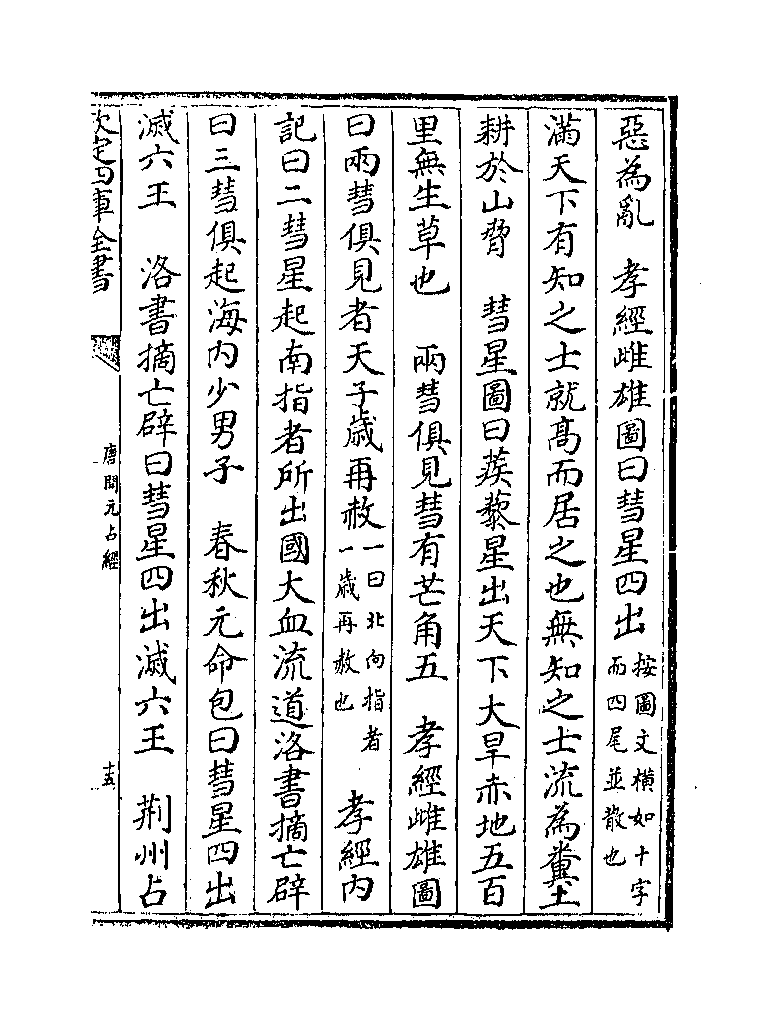 惡為亂　孝經雌雄圖曰彗星四出按圖文橫如十字而四尾並散也
滿天下有知之士就高而居之也無知之士流為糞土
耕於山脅　彗星圖曰蒺藜星出天下大旱赤地五百
里無生草也　兩彗俱見彗有芒角五　孝經雌雄圖
曰兩彗俱見者天子歲再赦一曰北向指者一歲再赦也　孝經內
記曰二彗星起南指者所出國大血流道洛書摘亡辟
曰三彗俱起海內少男子　春秋元命包曰彗星四出
滅六王　洛書摘亡辟曰彗星四出滅六王　荆州占
欽定四庫全書
唐開元占經
十五